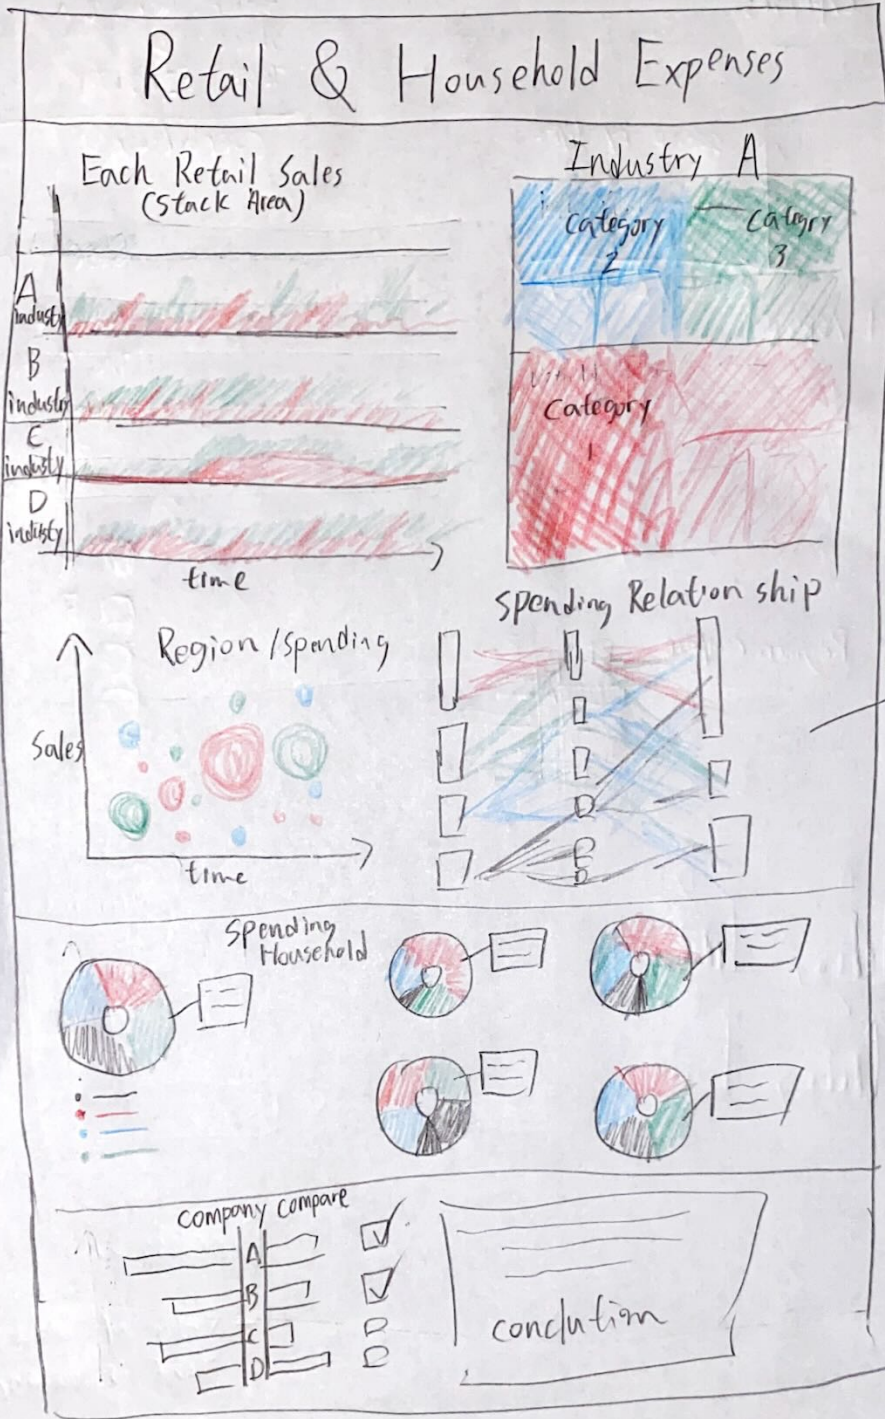 Retail & Household Expenses
Each Retail Sales
(Stack Area)
A
industy
B
industry
C
industy
D
industy
time
Industry A
Category
2
Catagry
3
Category
1
Spending Relation ship
Region / spending
Sales
time
Spending
Household
Company Compare
A
B
C
D
Conclution